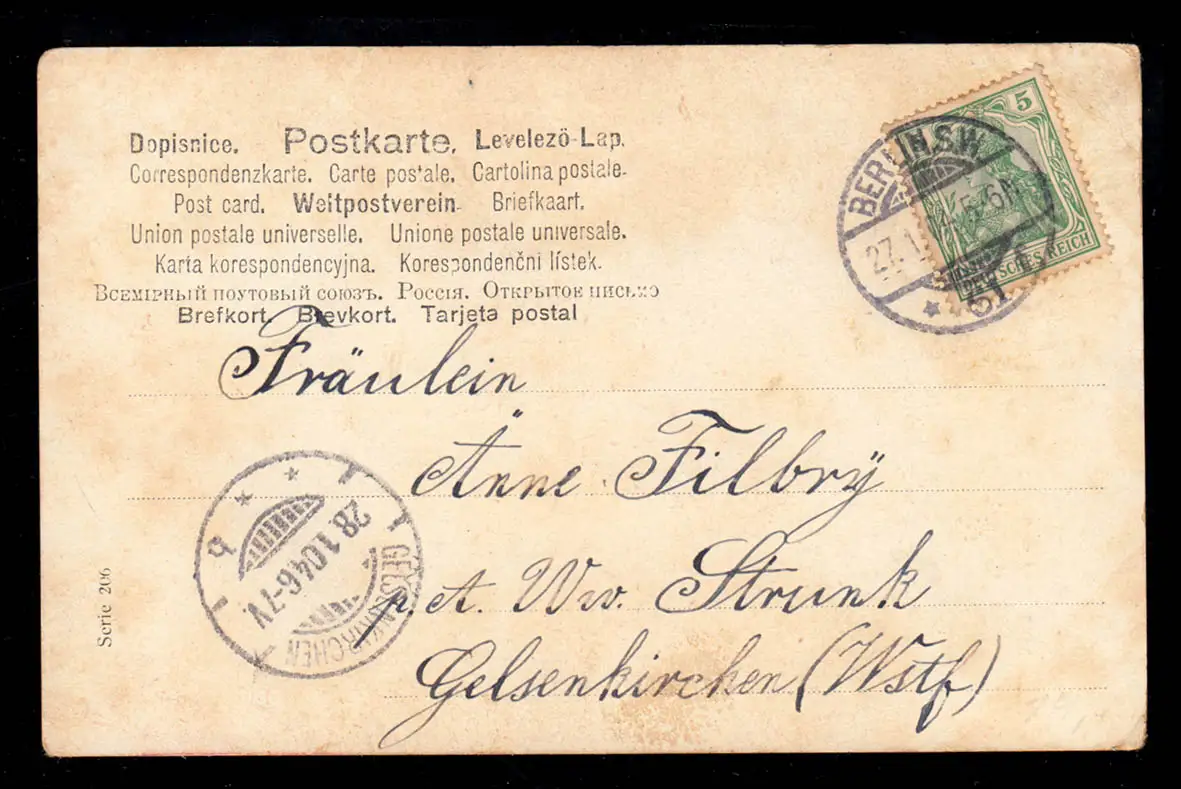 Dopisnice. Postkarte. Levelező-Lap.
Correspondenzkarte. Carte postale. Cartolina postale.
Post card. Weltpostverein. Briefkaart.
Union postale universelle. Unione postale universale.
Karta korespondencyjna. Korespondenční lístek.
Всемірный поутовый союзъ. Россія. Открытое письмо
Brefkort. Brevkort. Tarjeta postal
5
DEUTSCHES REICH
BERLIN.SW.
27.1.
5-6N.
Fräulein
Änne Filbrÿ
p. A. Ww. Strunk
Gelsenkirchen (Wstf)
GELSENKIRCHEN
28.1.04.6-7V.
Serie 206